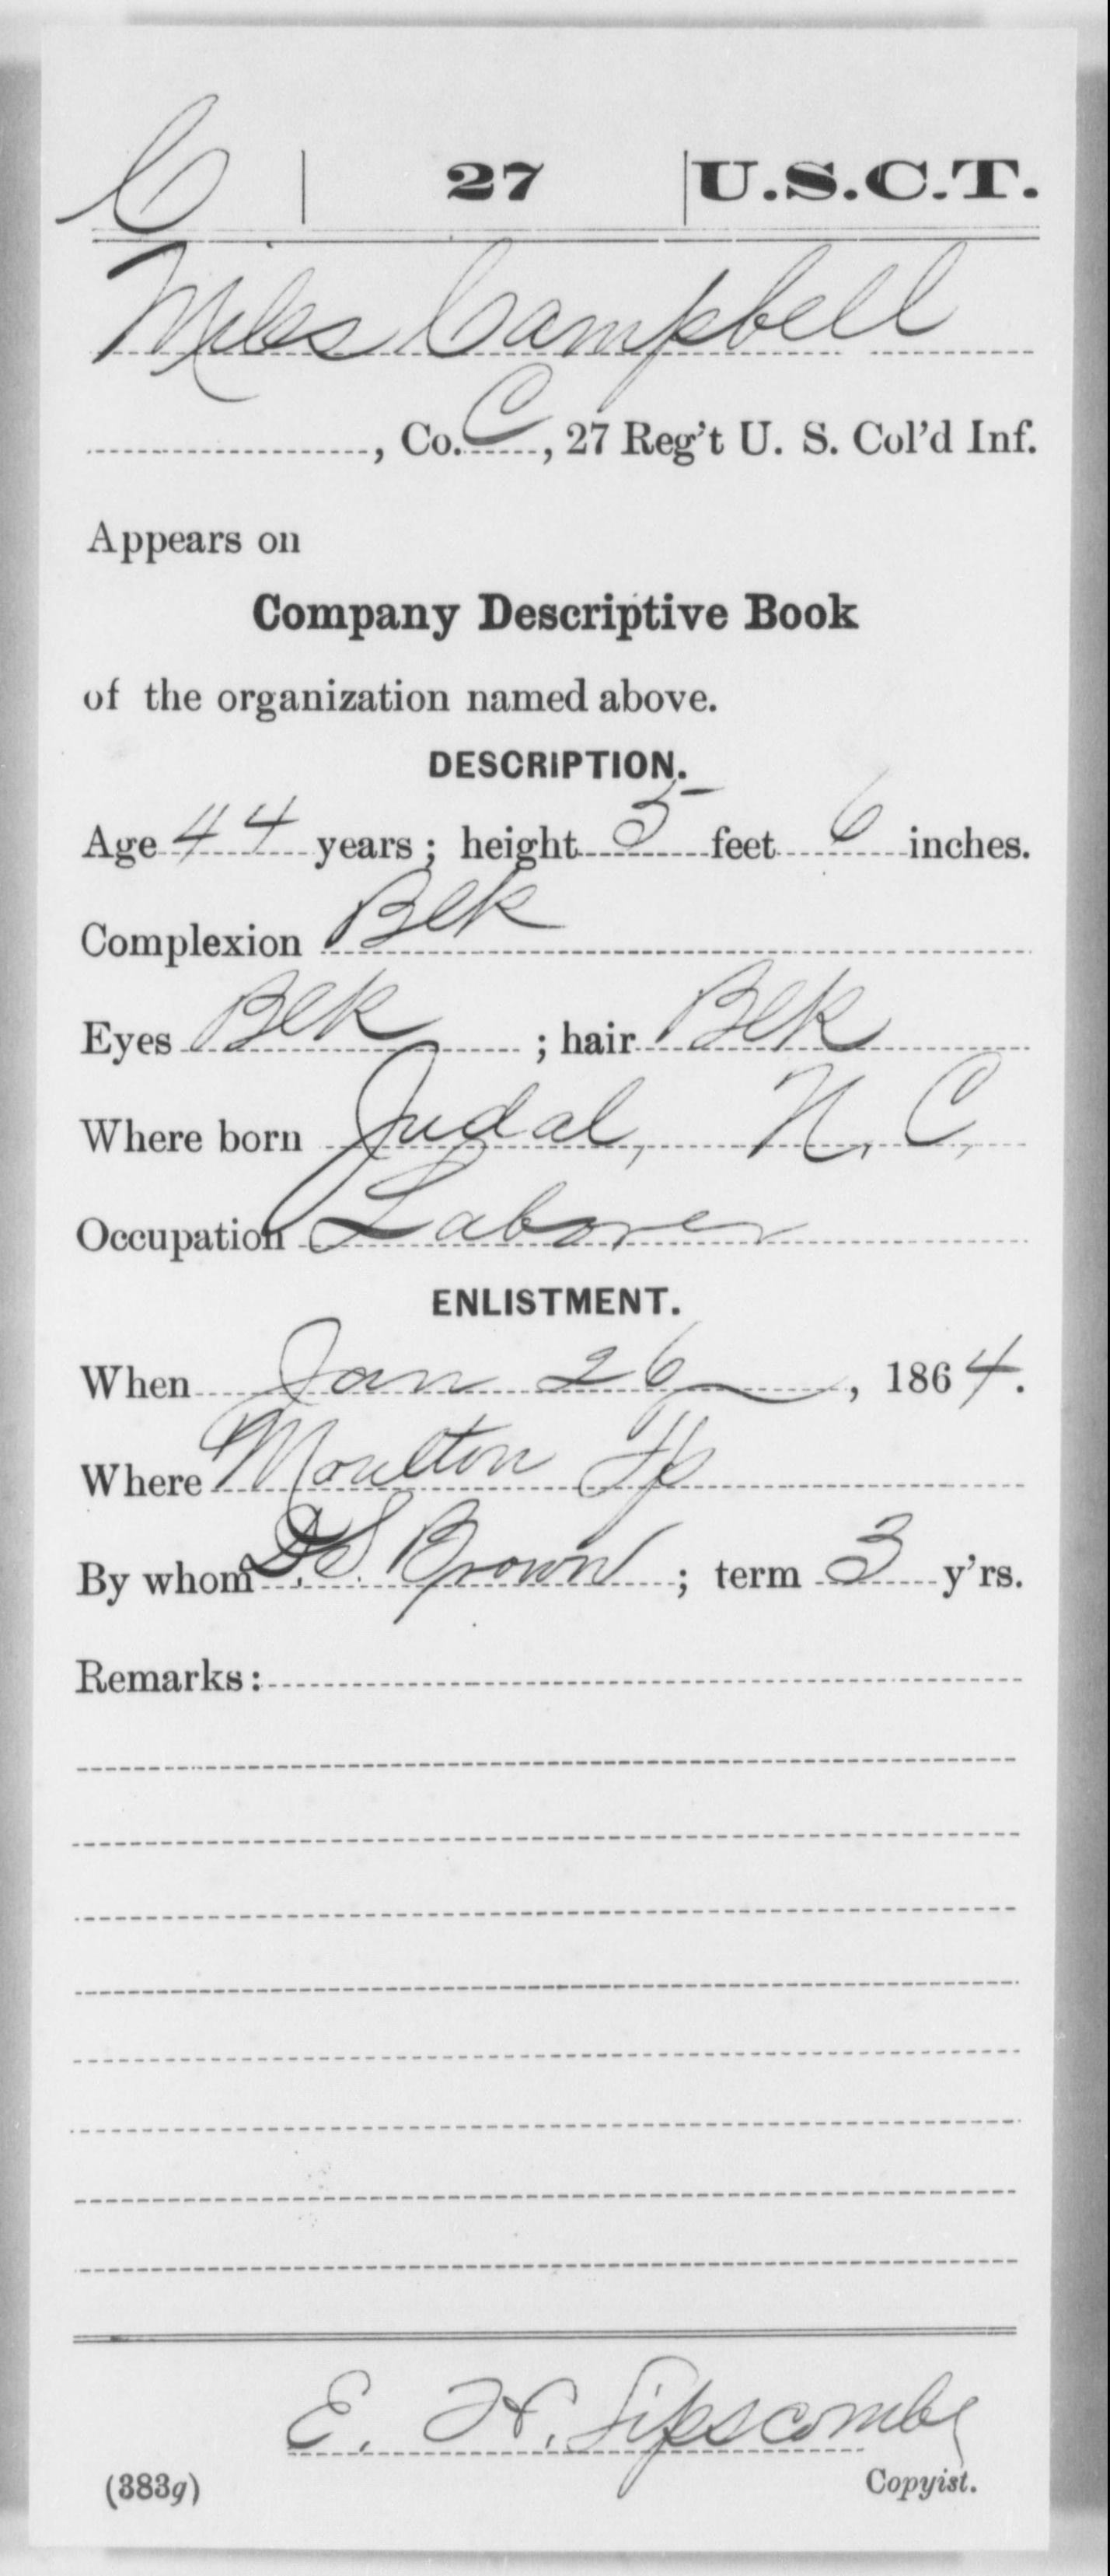 C | 27 | U.S.C.T.
Miles Campbell
, Co. C, 27 Reg't U. S. Col'd Inf.
Appears on
Company Descriptive Book
of the organization named above.
DESCRIPTION.
Age 44 years; height 5 feet 6 inches.
Complexion Blk
Eyes Blk; hair Blk
Where born Judal, N. C.
Occupation Laborer
ENLISTMENT.
When Jan 26, 1864.
Where Moulton Tp
By whom D. S. Brown; term 3 y'rs.
Remarks:
E. H. Lipscombe
(383g) Copyist.